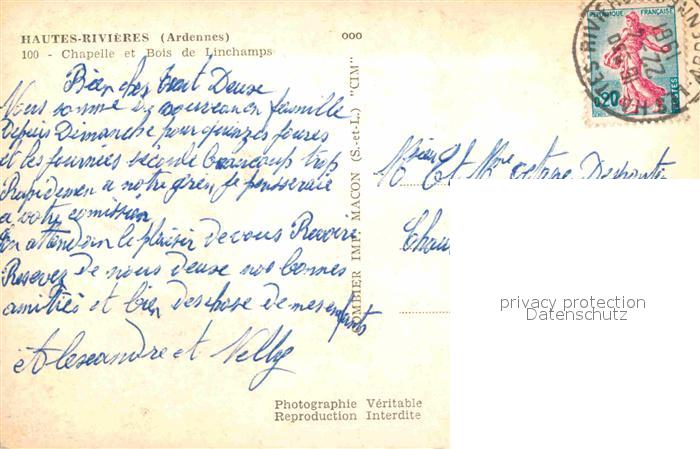 HAUTES-RIVIÈRES (Ardennes)
100 - Chapelle et Bois de Linchamps
ooo
RÉPUBLIQUE FRANÇAISE
0,20
POSTES
Bien cher tout Deuse
Nous somme ici nouveau en famille
Depuis Dimanche pour quinzes jours
et les journées sécoule beaucoup trop
Rapidemen a notre grés, je pensseraie
a votre comission
En attendan le plaisir de vous Revoire
Resevez de nous deuse nos bonnes
amitiés et bien des chose de mes enfants
Alexandre et Nelly
COMBIER IMP. MACON (S.-et-L.) "CIM"
Et Mme
privacy protection
Datenschutz
Photographie Véritable
Reproduction Interdite